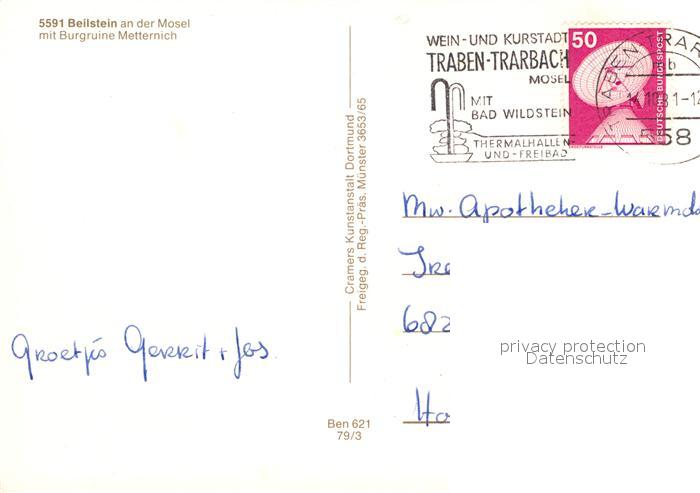 5591 Beilstein an der Mosel
mit Burgruine Metternich
WEIN-UND KURSTADT
TRABEN-TRARBACH
MOSEL
MIT
BAD WILDSTEIN
THERMALHALLEN
UND-FREIBAD
50
DEUTSCHE BUNDESPOST
TRABEN-TRAR
mb
558
Cramers Kunstanstalt Dortmund
Freigeg. d. Reg.-Präs. Münster 3653/65
Mw. Apotheker-Warmd
682
Groetjes Gerrit + Jos
privacy protection
Datenschutz
Ben 621
79/3